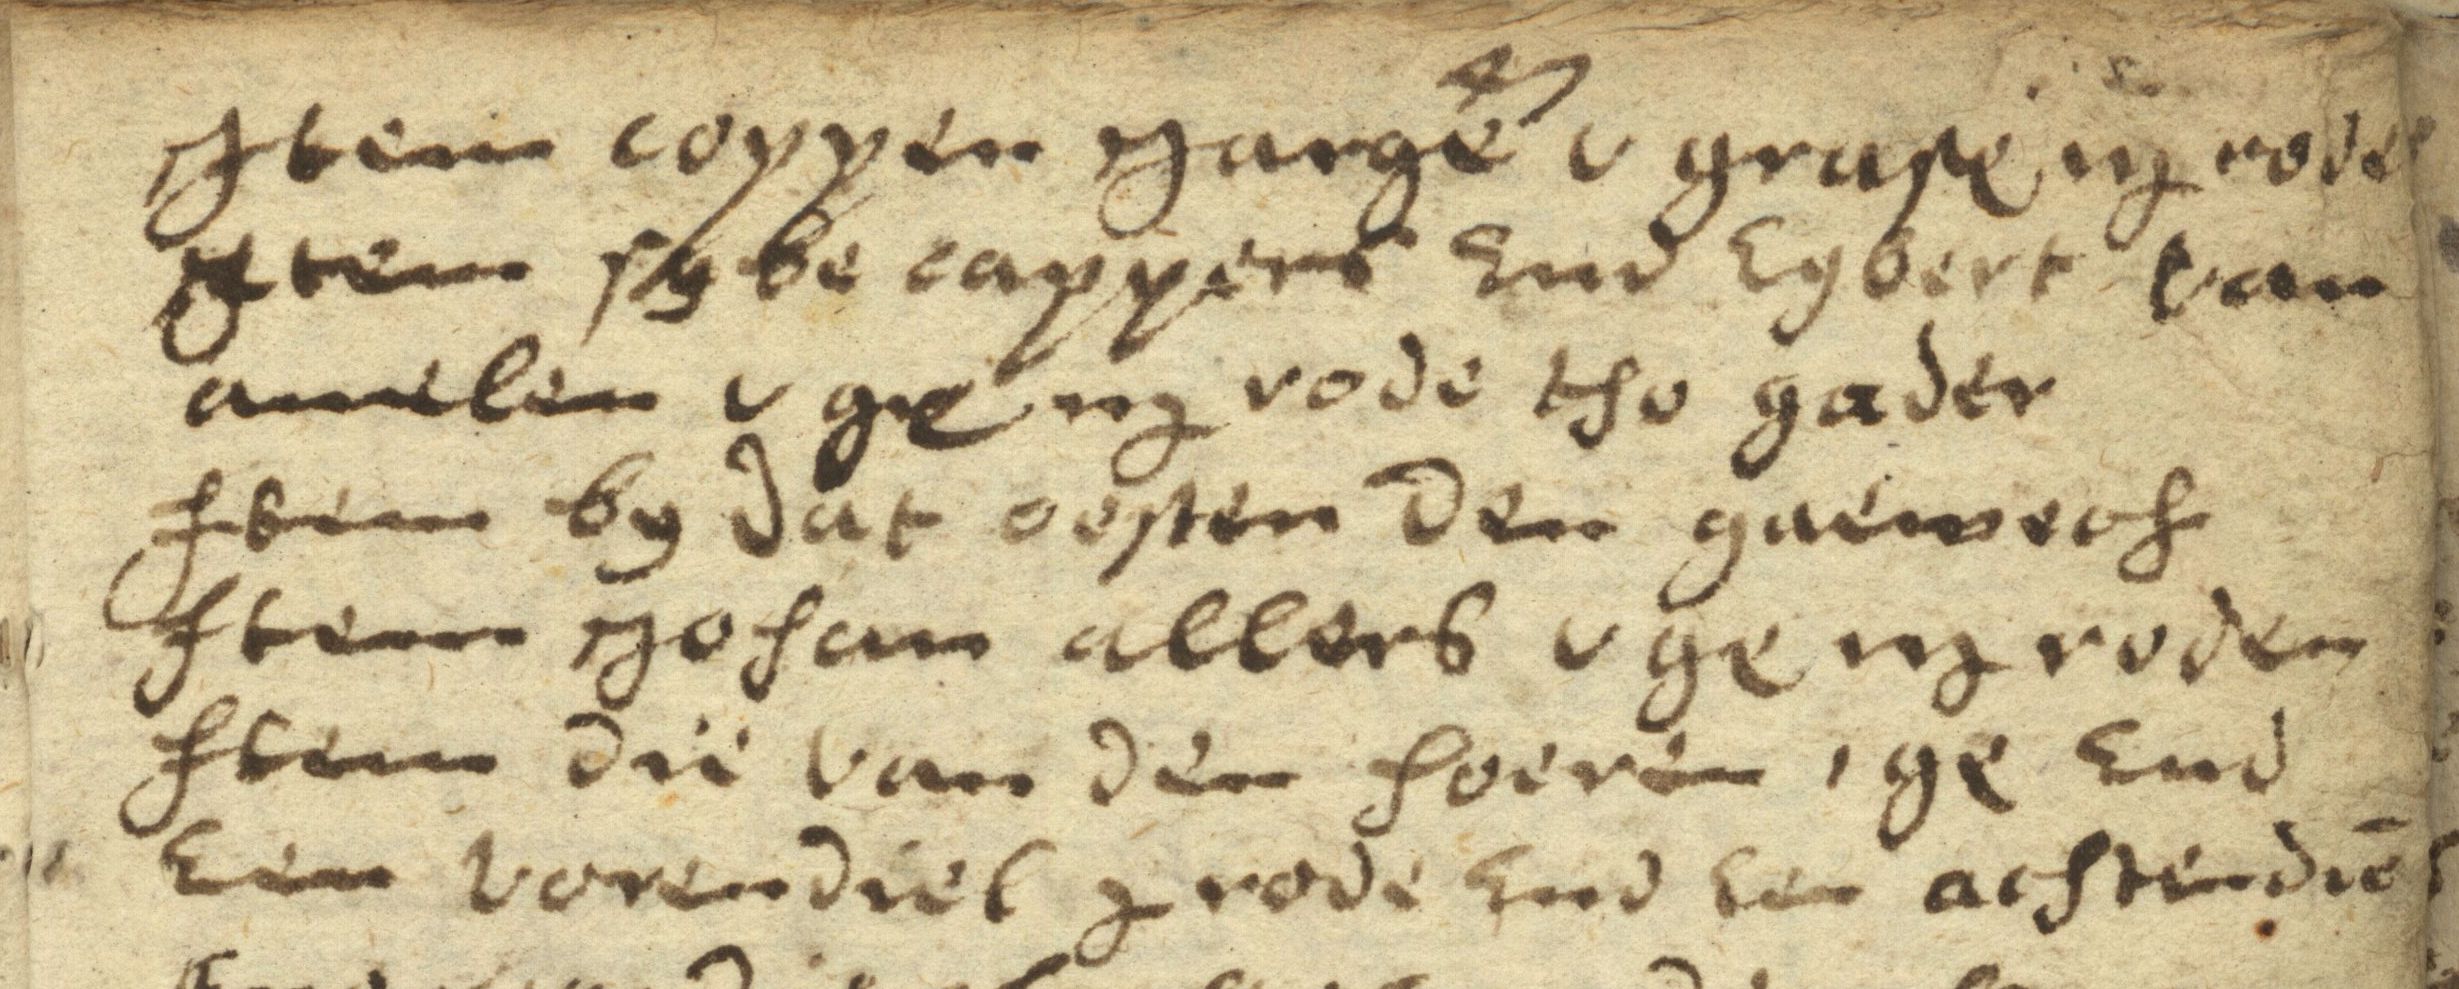 Item coppen Jarges v grase iij rode
Item sybe cappers End Eybert van
amelen v gre iij rode tho gader
Item by dat oesten den gaewech
Item Johan allers v gre iij roden
Item die van den hoeren i gre End
Een vorendiel j rode End een achtendiē